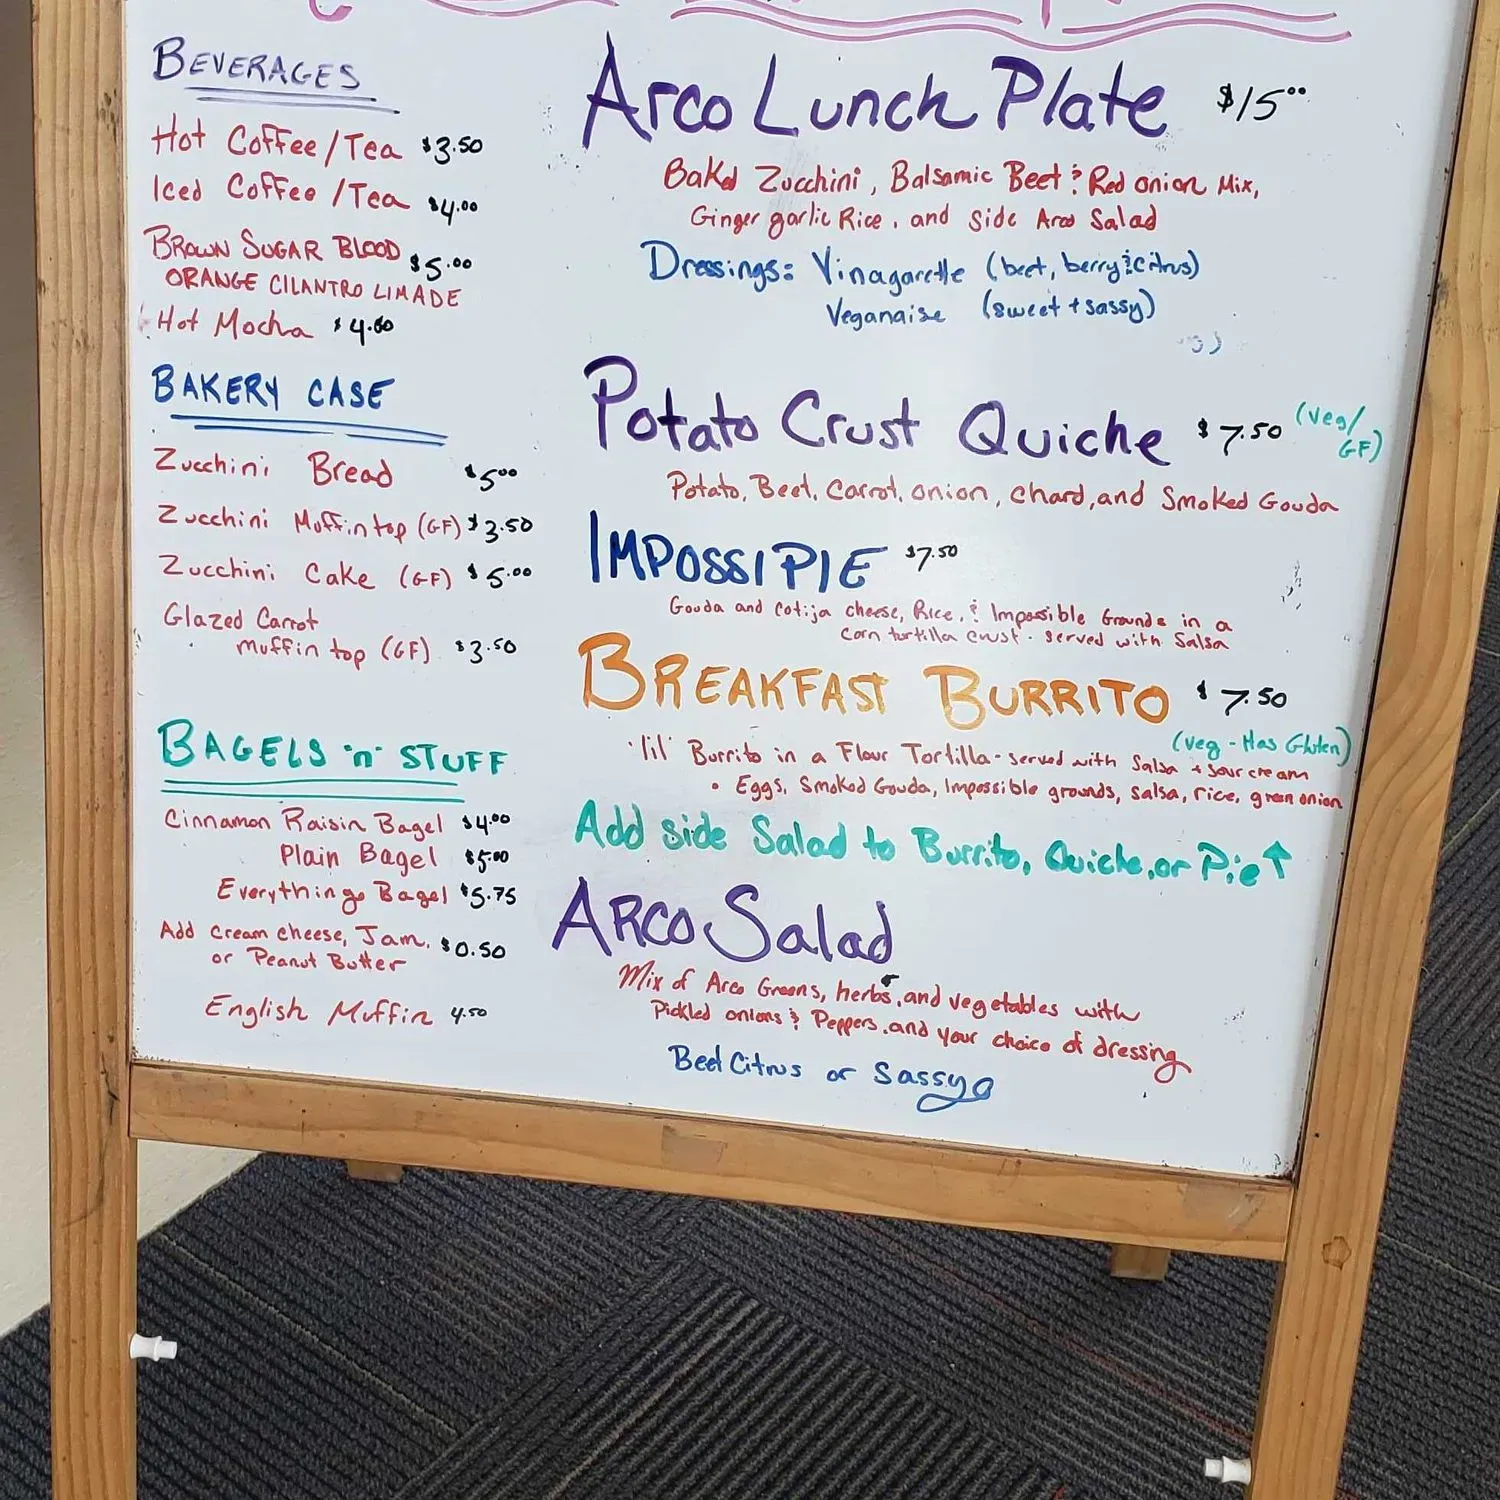 BEVERAGES
Hot Coffee/Tea $3.50
Iced Coffee/Tea $4.00
BROWN SUGAR BLOOD
ORANGE CILANTRO LIMADE $5.00
Hot Mocha $4.00
BAKERY CASE
Zucchini Bread $5.00
Zucchini Muffin top (GF) $3.50
Zucchini Cake (GF) $5.00
Glazed Carrot
muffin top (GF) $3.50
BAGELS 'n' STUFF
Cinnamon Raisin Bagel $4.00
Plain Bagel $5.00
Everything Bagel $5.75
Add cream cheese, Jam,
or Peanut Butter $0.50
English Muffin 4.50
Arco Lunch Plate $15.00
Baked Zucchini, Balsamic Beet & Red onion Mix,
Ginger garlic Rice, and side Arco Salad
Dressings: Vinagarette (beet, berry & citrus)
Veganaise (sweet + sassy)
Potato Crust Quiche $7.50 (veg/
GF)
Potato, Beet, Carrot, onion, chard, and Smoked Gouda
IMPOSSIPIE $7.50
Gouda and Cotija cheese, Rice, & Impossible Grounds in a
corn tortilla crust - served with Salsa
BREAKFAST BURRITO $7.50
(veg - Has Gluten)
'lil' Burrito in a Flour Tortilla - served with Salsa + sour cream
• Eggs, Smoked Gouda, Impossible grounds, salsa, rice, green onion
Add side Salad to Burrito, Quiche, or Pie ↑
ARCO Salad
Mix of Arco Greens, herbs, and vegetables with
Pickled onions & Peppers, and your choice of dressing
Beet Citrus or Sassy